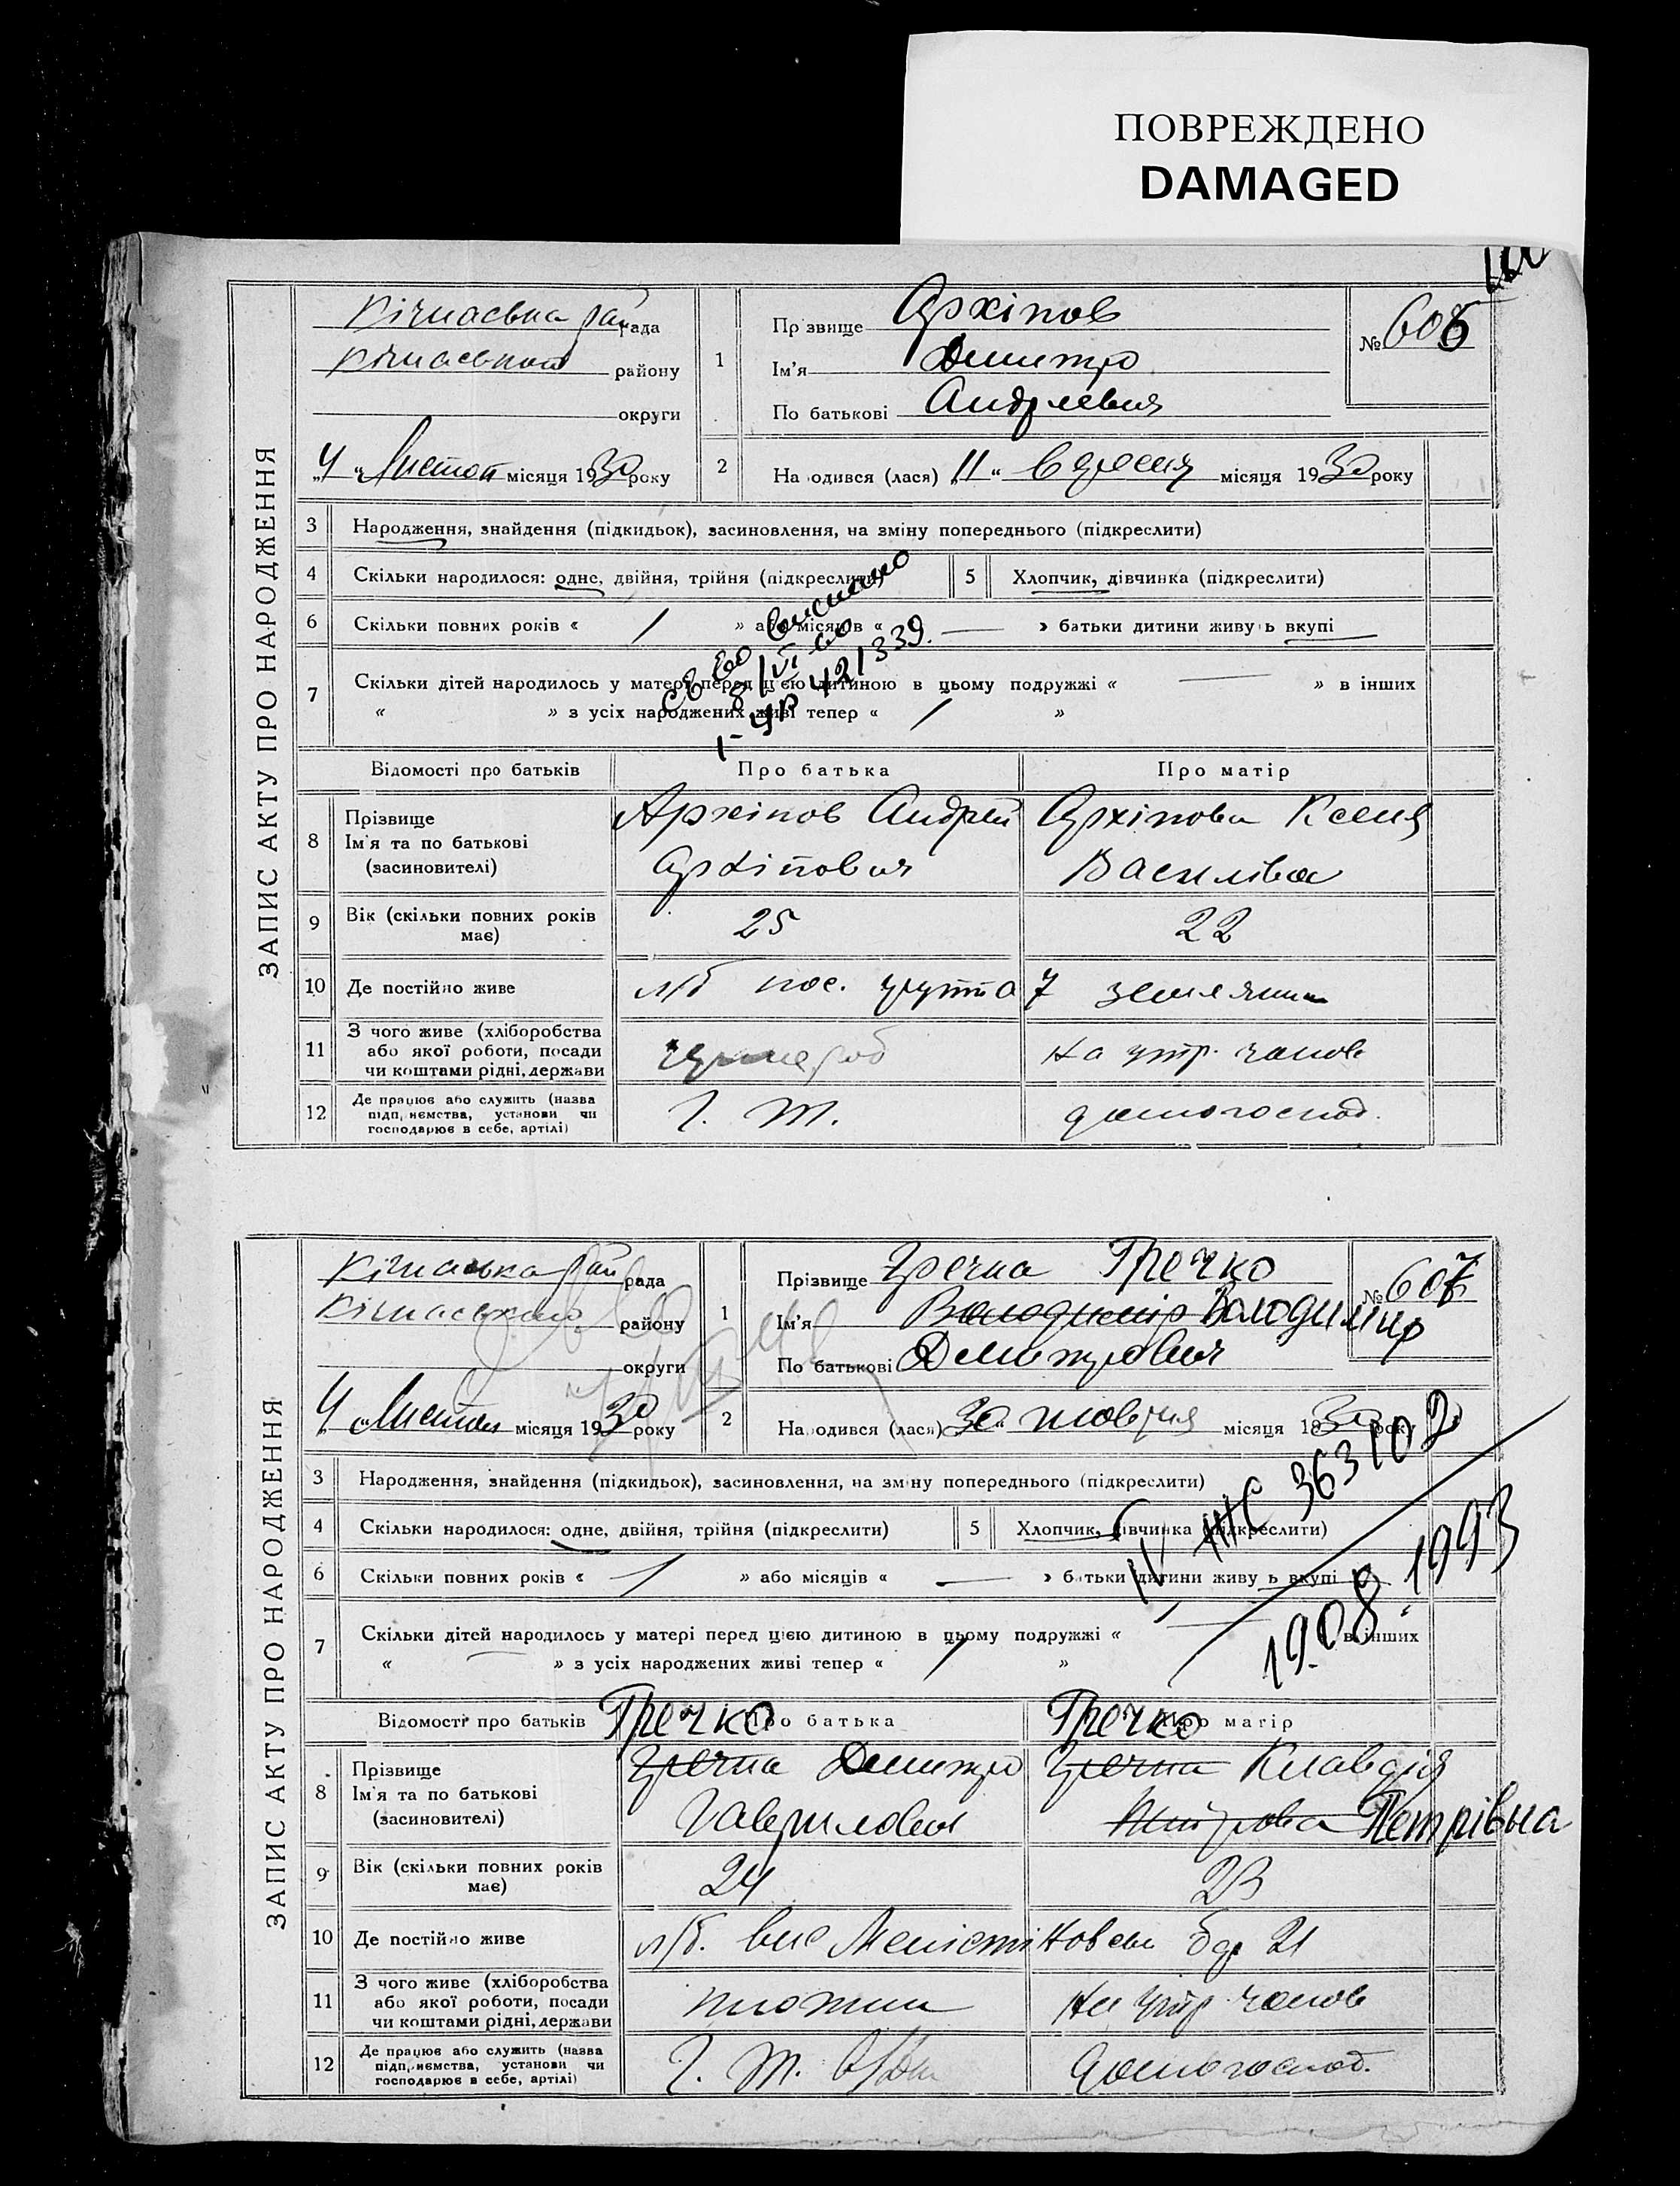 ПОВРЕЖДЕНО
DAMAGED
ЗАПИС АКТУ ПРО НАРОДЖЕННЯ
рада
району
округи
„4“ Листоп місяця 1930 року
1
Прізвище Архіпов
Ім'я Дмитро
По батькові Андрієвич
№ 606
2
Народився (лася) „11“ вересня місяця 1930 року
3 Народження, знайдення (підкидьок), засиновлення, на зміну попереднього (підкреслити)
4 Скільки народилося: одне, двійня, трійня (підкреслити)
5 Хлопчик, дівчинка (підкреслити)
6 Скільки повних років « 1 » або місяців « — » батьки дитини живуть вкупі
7 Скільки дітей народилось у матері перед цією дитиною в цьому подружжі « — » в інших
« » з усіх народжених живі тепер « 1 »
Св во виписано
8/VI-60
І-УР 421339.
Відомості про батьків Про батька Про матір
8 Прізвище
Ім'я та по батькові
(засиновителі)
Архіпов Андрей
Архіпович
Архіпова Ксеня
Василівна
9 Вік (скільки повних років має)
25
22
10 Де постійно живе
л/б пос. група 7 землянки
11 З чого живе (хліборобства
або якої роботи, посади
чи коштами рідні, держави
на утр. чолов
12 Де працює або служить (назва
підприємства, установи чи
господарює в себе, артілі)
Г. Т.
домогоспод.
ЗАПИС АКТУ ПРО НАРОДЖЕННЯ
рада
району
округи
„4“ Листоп місяця 1930 року
1
Прізвище Гречка Гречко
Ім'я Володимір Володимир
По батькові Дмитрович
№ 607
2
Народився (лася) „30“ жовтня місяця 1930 року
3 Народження, знайдення (підкидьок), засиновлення, на зміну попереднього (підкреслити)
4 Скільки народилося: одне, двійня, трійня (підкреслити)
5 Хлопчик, дівчинка (підкреслити)
6 Скільки повних років « 1 » або місяців « — » батьки дитини живуть вкупі
7 Скільки дітей народилось у матері перед цією дитиною в цьому подружжі « — » в інших
« — » з усіх народжених живі тепер « 1 »
ЖС 363102
19.08.1993
Відомості про батьків Про батька Про матір
Гречко
Гречко
8 Прізвище
Ім'я та по батькові
(засиновителі)
Гречка Дмитро
Гаврилович
Гречка Клавдія
Петрівна
9 Вік (скільки повних років має)
24
23
10 Де постійно живе
л/б.
21
11 З чого живе (хліборобства
або якої роботи, посади
чи коштами рідні, держави
на утр. чолов
12 Де працює або служить (назва
підприємства, установи чи
господарює в себе, артілі)
Г. Т.
домогоспод.